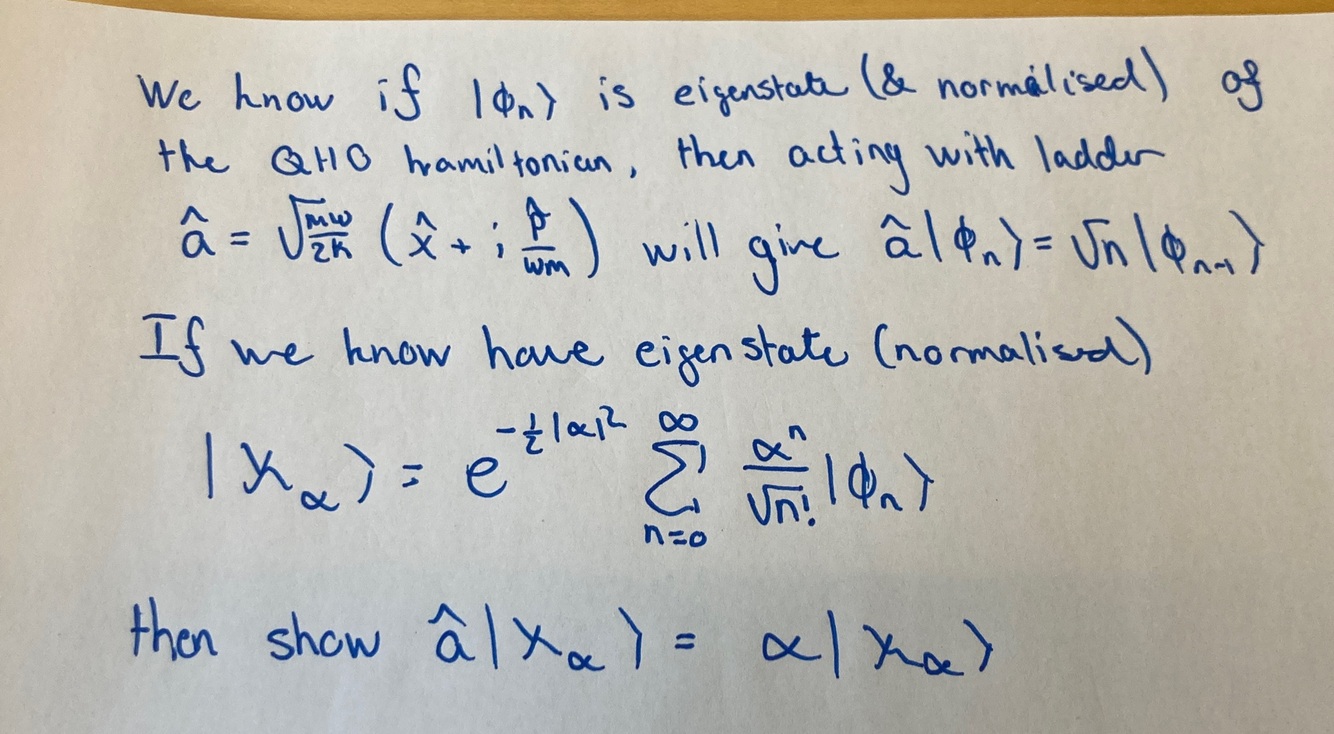 We know if |ϕₙ⟩ is eigenstate (& normalised) of
the QHO hamiltonian, then acting with ladder
â = √(mω/2ħ) (x̂ + i p̂/ωm) will give â|ϕₙ⟩ = √n |ϕₙ₋₁⟩
If we know have eigenstate (normalised)
|χ_α⟩ = e^(-½|α|²) ∑_{n=0}^{∞} αⁿ/√n! |ϕₙ⟩
then show â|χ_α⟩ = α|χ_α⟩